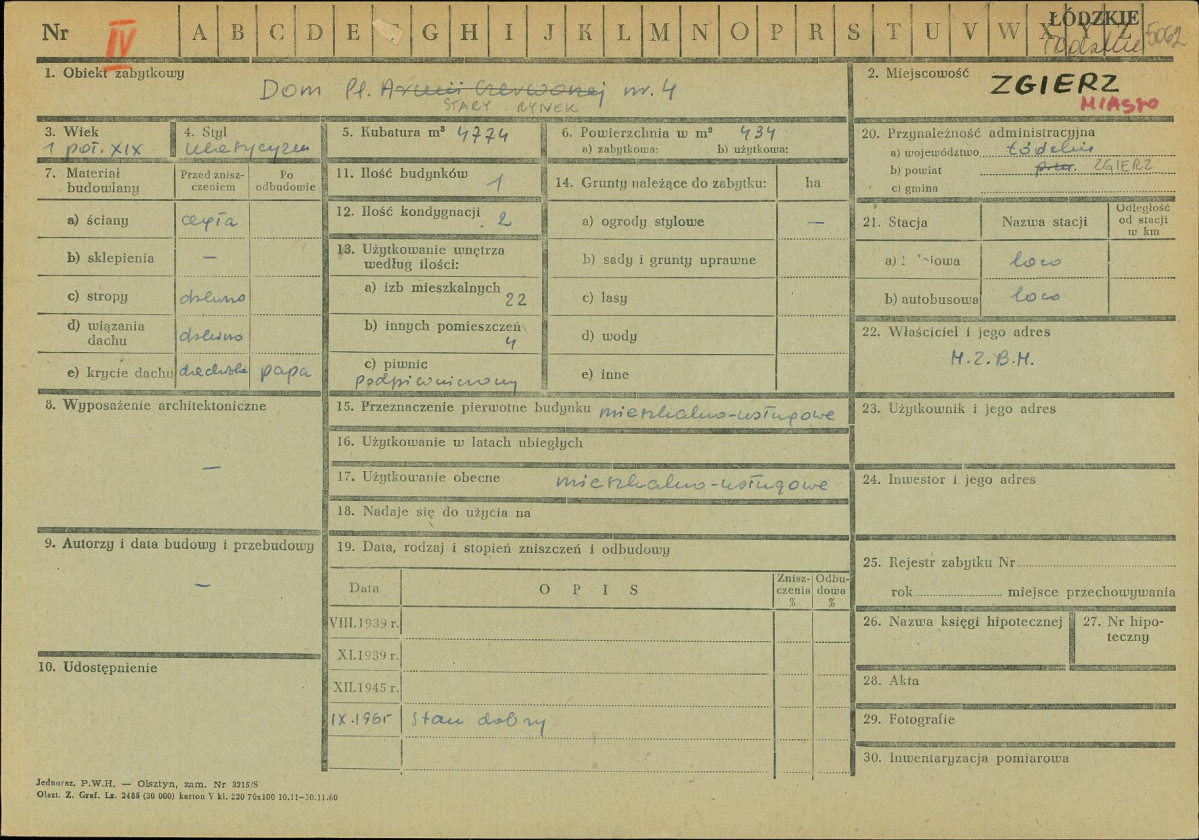 Nr IV A B C D E F G H I J K L M N O P R S T U V W X Y Z
ŁÓDZKIE
łódzkie 5062
1. Obiekt zabytkowy
Dom Pl. Armii Czerwonej nr. 4
STARY RYNEK
2. Miejscowość
ZGIERZ
MIASTO
3. Wiek
1 poł. XIX
4. Styl
klasycyzm
5. Kubatura m³ 4774
6. Powierzchnia w m² 434
a) zabytkowa: b) użytkowa:
7. Materiał budowlany
Przed zniszczeniem
Po odbudowie
a) ściany cegła
b) sklepienia –
c) stropy drewno
d) wiązania dachu drewno
e) krycie dachu dachówka papa
8. Wyposażenie architektoniczne
–
9. Autorzy i data budowy i przebudowy
–
10. Udostępnienie
11. Ilość budynków 1
12. Ilość kondygnacji 2
13. Użytkowanie wnętrza
według ilości:
a) izb mieszkalnych
22
b) innych pomieszczeń
4
c) piwnic
podpiwniczony
14. Grunty należące do zabytku: ha
a) ogrody stylowe –
b) sady i grunty uprawne
c) lasy
d) wody
e) inne
15. Przeznaczenie pierwotne budynku mieszkalno-usługowe
16. Użytkowanie w latach ubiegłych
17. Użytkowanie obecne mieszkalno-usługowe
18. Nadaje się do użycia na
19. Data, rodzaj i stopień zniszczeń i odbudowy
Data OPIS Zniszczenia % Odbudowa %
VIII.1939 r.
XI.1939 r.
XII.1945 r.
IX.1965 Stan dobry
20. Przynależność administracyjna
a) województwo Łódzkie
b) powiat ZGIERZ
c) gmina
21. Stacja Nazwa stacji Odległość od stacji w km
a) loco
b) autobusowa loco
22. Właściciel i jego adres
M.Z.B.M.
23. Użytkownik i jego adres
24. Inwestor i jego adres
25. Rejestr zabytku Nr
rok miejsce przechowywania
26. Nazwa księgi hipotecznej
27. Nr hipoteczny
28. Akta
29. Fotografie
30. Inwentaryzacja pomiarowa
Jednoraz. P.W.H. — Olsztyn, zam. Nr 3215/S
Olszt. Z. Graf. Lz. 2485 (30 000) karton V kl. 220 70x100 10.11–30.11.60